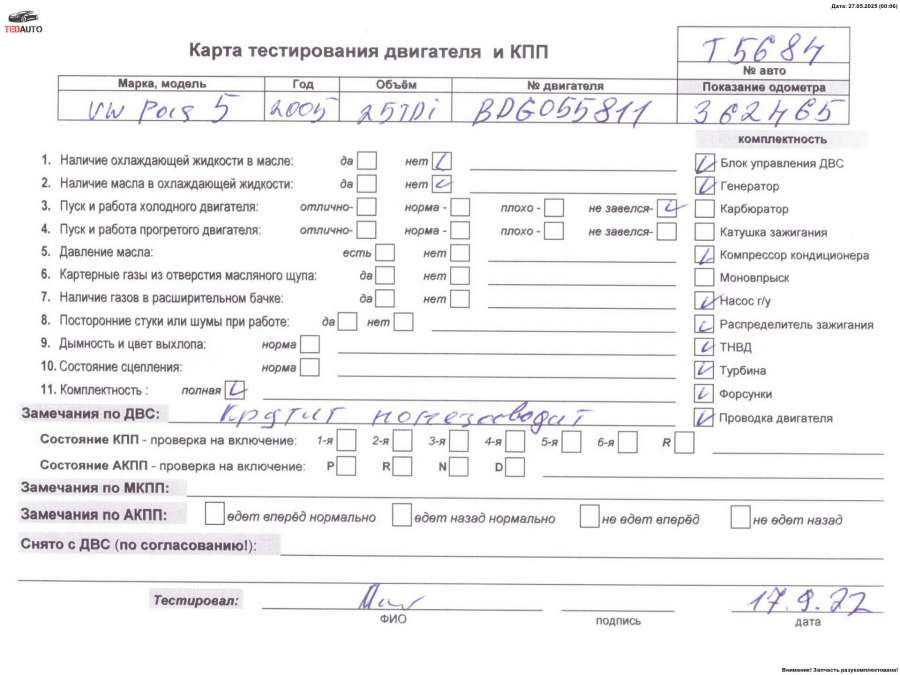 Дата: 27.05.2025 (00:06)
TEDAUTO
Карта тестирования двигателя и КПП
T5684
№ авто
Марка, модель Год Объём № двигателя Показание одометра
VW Pas 5 2005 25TDi BDG055811 362465
комплектность
1. Наличие охлаждающей жидкости в масле: да нет
Блок управления ДВС
2. Наличие масла в охлаждающей жидкости: да нет
Генератор
3. Пуск и работа холодного двигателя: отлично- норма - плохо - не завелся-
Карбюратор
4. Пуск и работа прогретого двигателя: отлично- норма - плохо - не завелся-
Катушка зажигания
5. Давление масла: есть нет
Компрессор кондиционера
6. Картерные газы из отверстия масляного щупа: да нет
Моновпрыск
7. Наличие газов в расширительном бачке: да нет
Насос г/у
8. Посторонние стуки или шумы при работе: да нет
Распределитель зажигания
9. Дымность и цвет выхлопа: норма
ТНВД
10. Состояние сцепления: норма
Турбина
11. Комплектность : полная
Форсунки
Замечания по ДВС: крутит но не заводит
Проводка двигателя
Состояние КПП - проверка на включение: 1-я 2-я 3-я 4-я 5-я 6-я R
Состояние АКПП - проверка на включение: P R N D
Замечания по МКПП:
Замечания по АКПП: едет вперёд нормально едет назад нормально не едет вперёд не едет назад
Снято с ДВС (по согласованию!):
Тестировал: 17.9.22
ФИО подпись дата
Внимание! Запчасть разукомплектована!